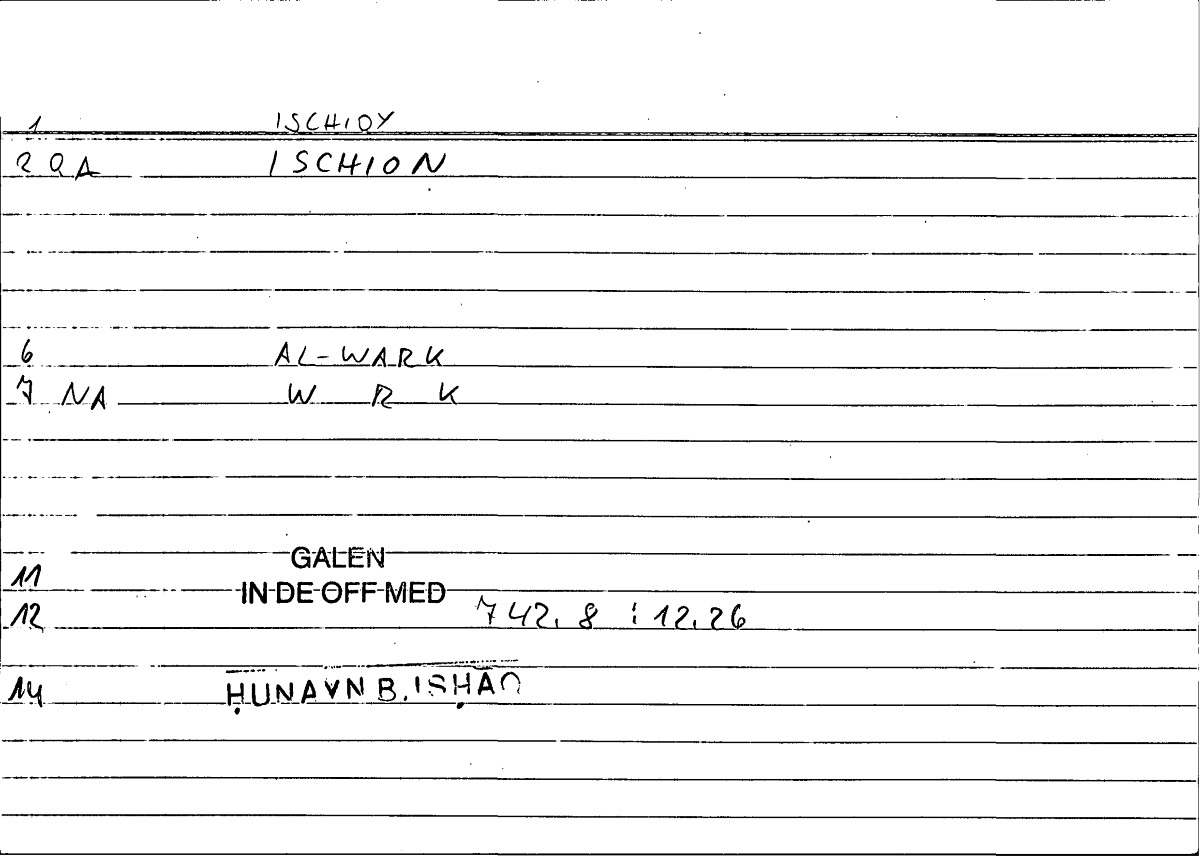 1 ISCHIOY
2 QA ISCHION
6 AL-WARK
7 NA W R K
GALEN
11
IN DE OFF MED
12 742.8 : 12.26
14 ḤUNAYN B. ISḤĀQ